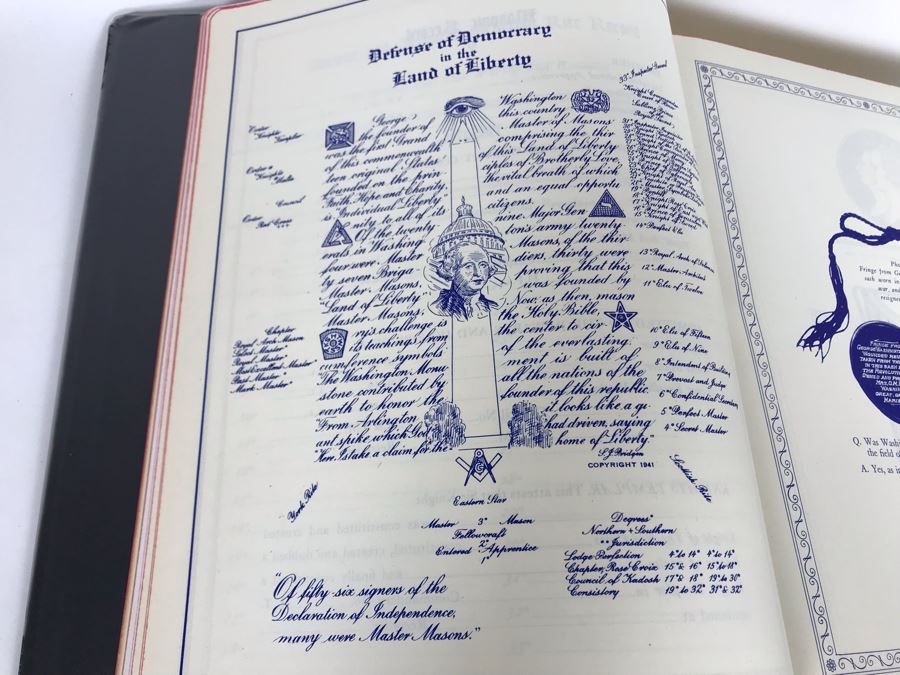 Defense of Democracy
in the
Land of Liberty
George Washington
the founder of this country
was the first Grand Master of Masons
of this commonwealth comprising the thir
teen original States of this Land of Liberty
founded on the prin ciples of Brotherly Love,
Faith, Hope and Charity, the vital breath of which
is "Individual Liberty and an equal opportu
nity to all of its citizens.
Of the twenty nine Major Gen
erals in Washing ton's army twenty
four were Master Masons, of the thir
ty seven Briga diers, thirty were
Master Masons, proving that this
"Land of Liberty" was founded by
Master Masons. Now, as then, mason
ry's challenge is the Holy Bible,
its teachings from the center to cir
cumference symbols of the everlasting.
The Washington Monu ment is built of
stone contributed by all the nations of the
earth to honor the founder of this republic.
From Arlington it looks like a gi
ant spike which God had driven, saying
"Here I stake a claim for the home of Liberty."
S.J. Bridgen
COPYRIGHT 1941
Order
Knights
Templar
Order
Knights
Malta
Council
Order
Red Cross
Chapter
Royal Arch Mason
Select Master
Royal Master
Most Excellent Master
Past Master
Mark Master
York Rite
33° Inspector General
14° Perfect Elu
13° Royal Arch of Solomon
12° Master Architect
11° Elu of Twelve
10° Elu of Fifteen
9° Elu of Nine
8° Intendant of Building
7° Provost and Judge
6° Confidential Secretary
5° Perfect Master
4° Secret Master
Scottish Rite
G
Eastern Star
Master 3° Mason
Fellowcraft
2°
Entered Apprentice
1°
Degrees
Northern + Southern
Jurisdiction
Lodge Perfection 4° to 14° 4° to 14°
Chapter, Rose Croix 15° & 16° 15° to 18°
Council of Kadosh 17° & 18° 19° to 30°
Consistory 19° to 32° 31° & 32°
"Of fifty-six signers of the
Declaration of Independence,
many were Master Masons."
Fringe from
war, and
Q. Was Wash
the field of
A. Yes, as i